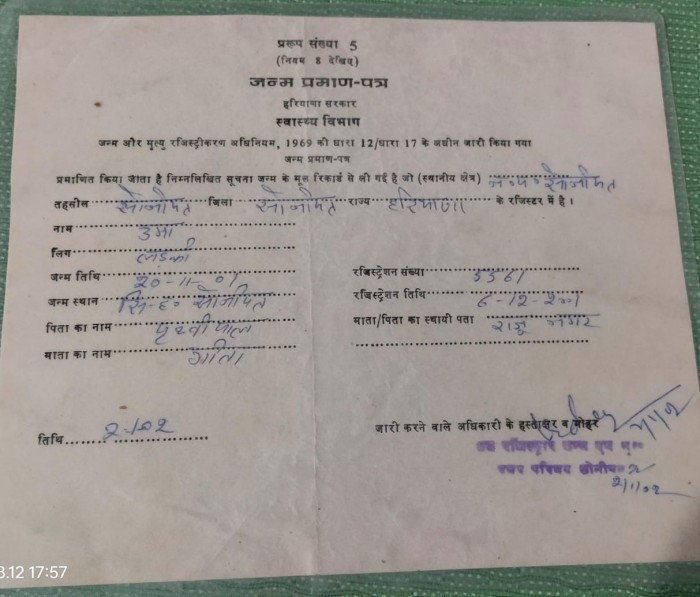 प्ररूप संख्या 5
(नियम 8 देखिए)
जन्म प्रमाण-पत्र
हरियाणा सरकार
स्वास्थ्य विभाग
जन्म और मृत्यु रजिस्ट्रीकरण अधिनियम, 1969 की धारा 12/धारा 17 के अधीन जारी किया गया
जन्म प्रमाण-पत्र
प्रमाणित किया जाता है निम्नलिखित सूचना जन्म के मूल रिकार्ड से ली गई है जो (स्थानीय क्षेत्र) न.प. सोनीपत
तहसील सोनीपत जिला सोनीपत राज्य हरियाणा के रजिस्टर में है।
नाम उमा
लिंग लड़की
जन्म तिथि 20-11-01 रजिस्ट्रेशन संख्या
जन्म स्थान सि.ह. सोनीपत रजिस्ट्रेशन तिथि 6-12-2001
पिता का नाम पृथ्वीपाल माता/पिता का स्थायी पता राजू नगर
माता का नाम
तिथि जारी करने वाले अधिकारी के हस्ताक्षर व मोहर
उप रजिस्ट्रार जन्म एवं
परिषद सोनीपत
2/1/02
3.12 17:57